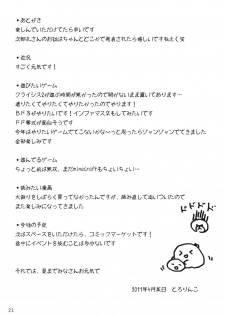 ★あとがき
楽しんでいただけてたら幸いです
次郎丸さんのお話はちゃんとどこかで発表されたら嬉しいですねえ父
★近況
すごく元気です！
★遊びたいゲーム
クライシス2が遊ぶ時間が無かったので間がないまま置いてあります
遊びたくてやりたくてやりたかったのでやります！
ＢＦ３がやりたいです！インファマス２もしてみたいです
ＦＦ零式が面白そうです
今年はやりたいゲームでてこないかな～と思ったらジャンジャンでてきました
全部楽しみです
★遊んでるゲーム
ちょっと前は無双、まだminicraftもちょいちょい…
★読みたい漫画
大振りをしばらく買ってなかったんですが、読み直して追いついたので
また楽しみになってきました
★今後の予定
次はスペースをいただければ、コミックマーケットです！
途中にイベントを挟むことはなさそうです
それでは、是非またみなさんお元気で
ドドドド
2011年4月某日　とろりんこ
21